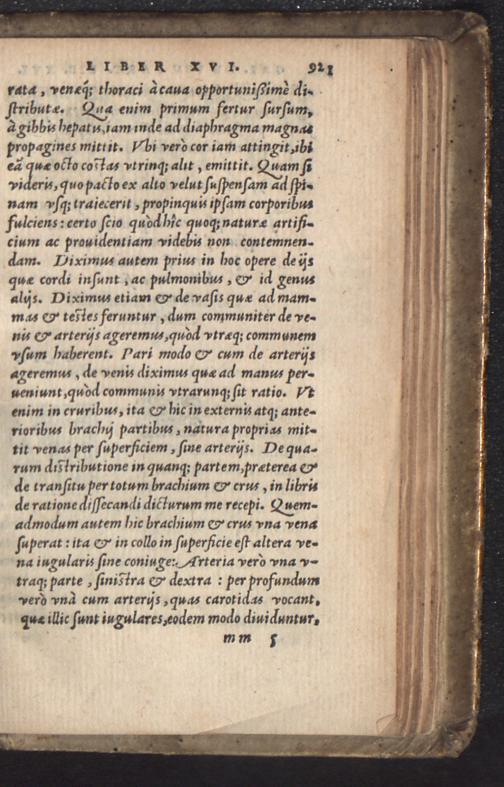 LIBER XVI. 921
rata, venæq́; thoraci à caua opportunißimè di-
ſtributæ. Qua enim primum fertur ſurſum,
à gibbis hepatis, iam inde ad diaphragma magnas
propagines mittit. Vbi verò cor iam attingit, ibi
eā quæ octo coſtas vtrinq; alit, emittit. Quam ſi
videris, quo pacto ex alto velut ſuſpenſam ad ſpi-
nam vſq; traiecerit, propinquis ipſam corporibus
fulciens: certo ſcio quòd hîc quoq; naturæ artifi-
cium ac prouidentiam videbis non contemnen-
dam. Diximus autem prius in hoc opere de ijs
quæ cordi inſunt, ac pulmonibus, & id genus
alijs. Diximus etiam & de vaſis quæ ad mam-
mas & teſtes feruntur, dum communiter de ve-
nis & arterijs ageremus, quòd vtræq; communem
vſum haberent. Pari modo & cum de arterijs
ageremus, de venis diximus quæ ad manus per-
ueniunt, quòd communis vtrarunq; ſit ratio. Vt
enim in cruribus, ita & hic in externis atq; ante-
rioribus brachij partibus, natura proprias mit-
tit venas per ſuperficiem, ſine arterijs. De qua-
rum diſtributione in quanq; partem, præterea &
de tranſitu per totum brachium & crus, in libris
de ratione diſſecandi dicturum me recepi. Quem-
admodum autem hic brachium & crus vna vena
ſuperat: ita & in collo in ſuperficie eſt altera ve-
na iugularis ſine coniuge: Arteria verò vna v-
traq; parte, ſiniſtra & dextra: per profundum
verò vnà cum arterijs, quas carotidas vocant,
quæ illic ſunt iugulares, eodem modo diuiduntur,
mm 5